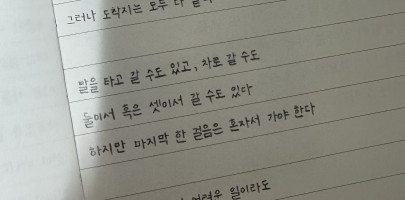 그러나 도착지는 모두 다
말을 타고 갈 수도 있고, 차로 갈 수도
둘이서 혹은 셋이서 갈 수도 있다
하지만 마지막 한 걸음은 혼자서 가야 한다
어려운 일이라도